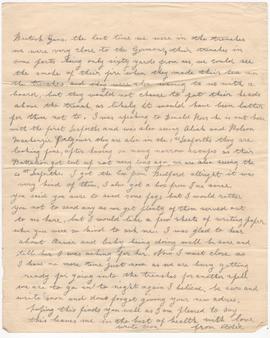 British Guns. the last time we were in the trenches
we were very close to the Germans, their trenches in
some parts being only sixty yards from us, we could see
the smoke of their fire when they made their tea in
the trenches and they were also waving to us with a
board, but they would not chance to put their heads
above the trench as likely it would have been better
for them not to. I was speaking to Donald Ross he is out here
with the first Seaforths and was also seeing Alick and
Mackenzie they are also in the Seaforths they are
looking fine, after having so many narrow escapes as their
Battalion got cut up not very long ago. we are also seeing the
4th Seaforths. I got the two from Bedford alright it was
very kind of them, I also got a box from
you said you were to send some fags but I would rather
you not to send any as we get plenty of them served out
to us here, but I would like a few sheets of writing paper
when you were so kind to ask me. I was glad to hear
about and baby being doing well be sure and
tell her I was asking for her. Now I must close as
I have no more time just now as we are busy getting
ready for going into the trenches for another spell
we are to go in to night again I believe, be sure and
write soon and dont forget giving your new address,
hoping this finds you well as I am pleased to say
this leaves me in the best of health with love
write soon from